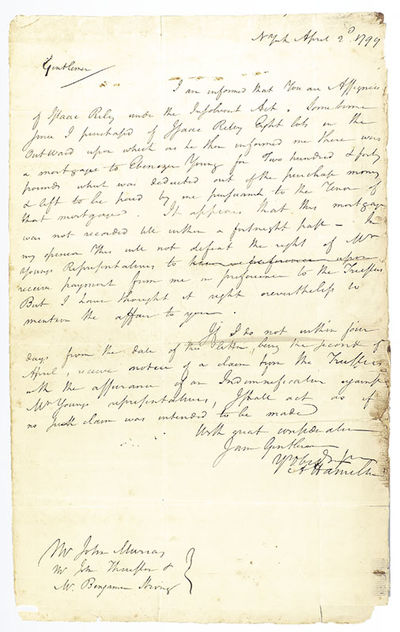 N York April 2d 1799
Gentlemen
I am informed that You are Assignees
of Isaac Riley under the Insolvent Act. Sometime
since I purchased of Isaac Riley Eight lots in the
Out ward upon which as he then informed me there was
a mortgage to Ebenezer Young for Two hundred & forty
pounds which was deducted out of the purchase money
& left to be paid by me pursuant to the Tenor of
that mortgage. It appears that this mortgage
was not recorded till within a fortnight past - In
my opinion This will not defeat the right of Mr
Youngs Representatives to
receive payment from me in preference to the Trustees
But I have thought it right nevertheless to
mention the affair to you.
If I do not within four
days from the date of this letter, being the second of
April, receive notice of a claim from the Trustees
with the assurance of an Indemnification against
Mr Youngs representatives, I shall act as if
no such claim was intended to be made
With great consideration
I am Gentlemen
Yr Obed ser
A Hamilton
Mr John Murray
Mr John Thurston &
Mr Benjamin Strong